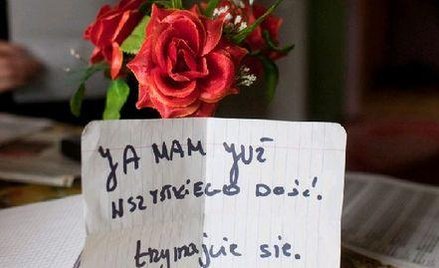 JA MAM JUŻ
WSZYSTKIEGO DOŚĆ.
trzymajcie sie.